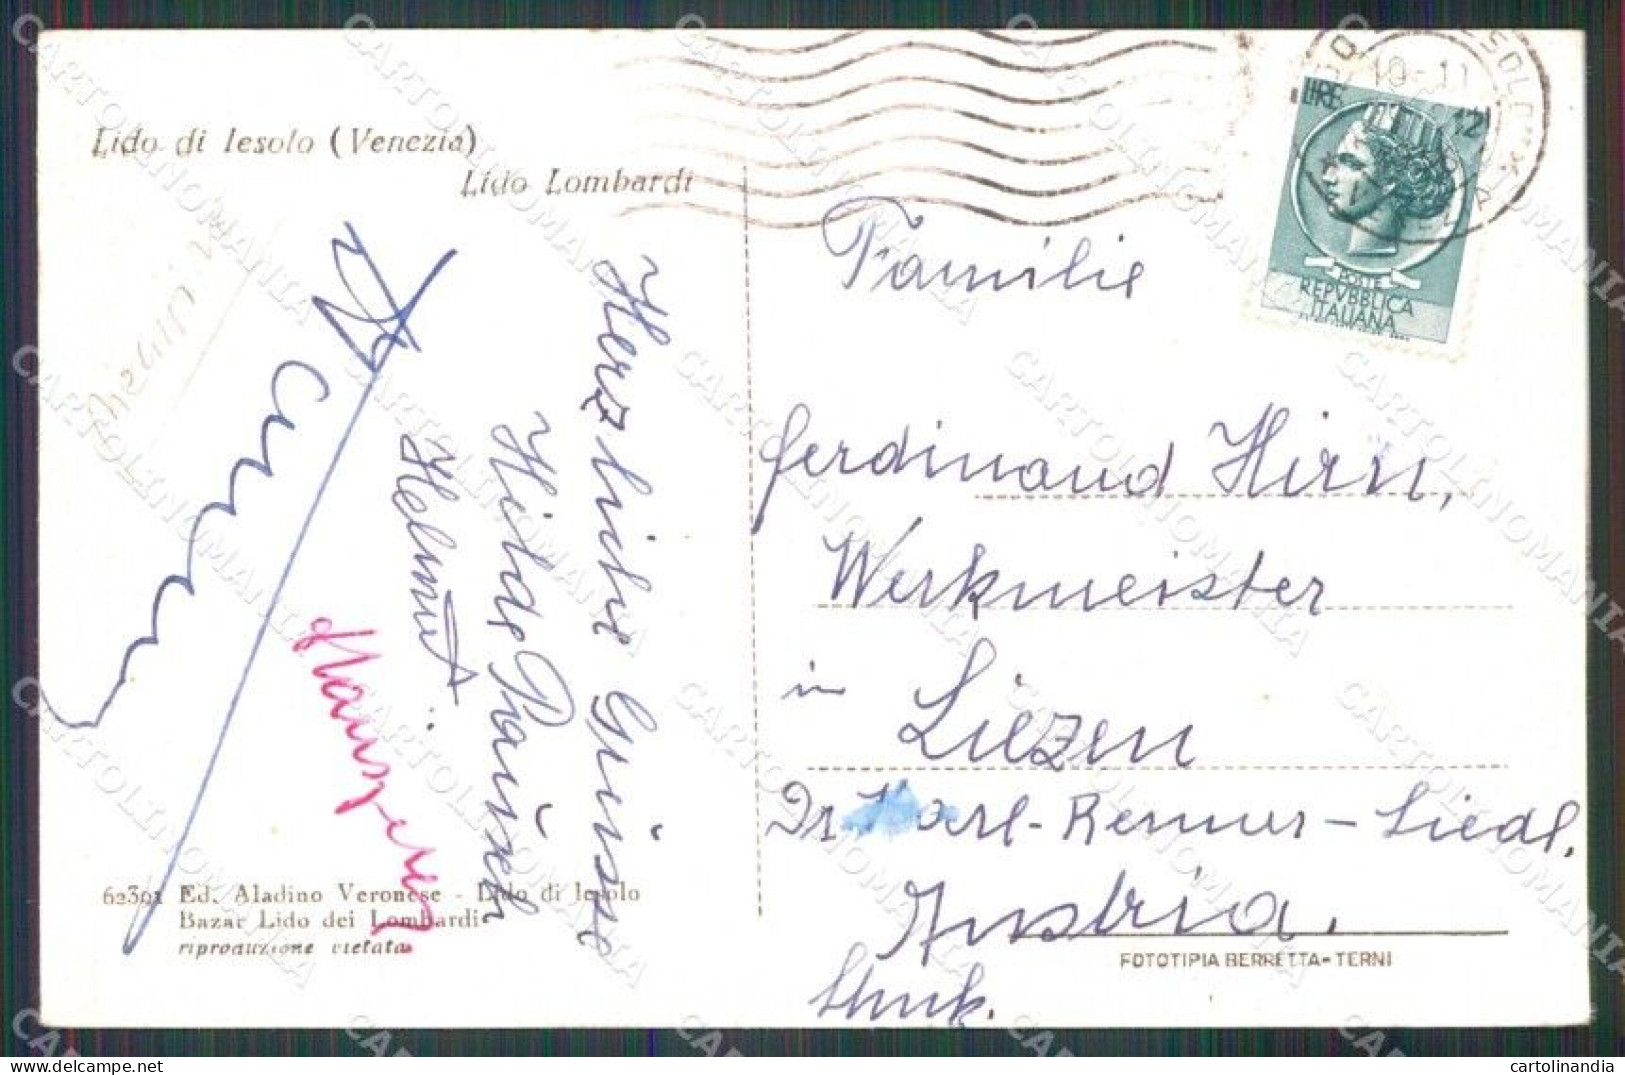 Lido di Iesolo (Venezia)
Lido Lombardi
Herzliche Grüsse
Hilde
Helmut
62361 Ed. Aladino Veronese - Lido di Iesolo
Bazar Lido dei Lombardi
riproduzione vietata
LIRE 12
POSTE
REPVBBLICA
ITALIANA
Familie
Ferdinand Hirn,
Werkmeister
in Liezen
Dr Karl-Renner-Siedl.
Austria.
FOTOTIPIA BERRETTA - TERNI
CARTOLINOMANIA
cartolinandia